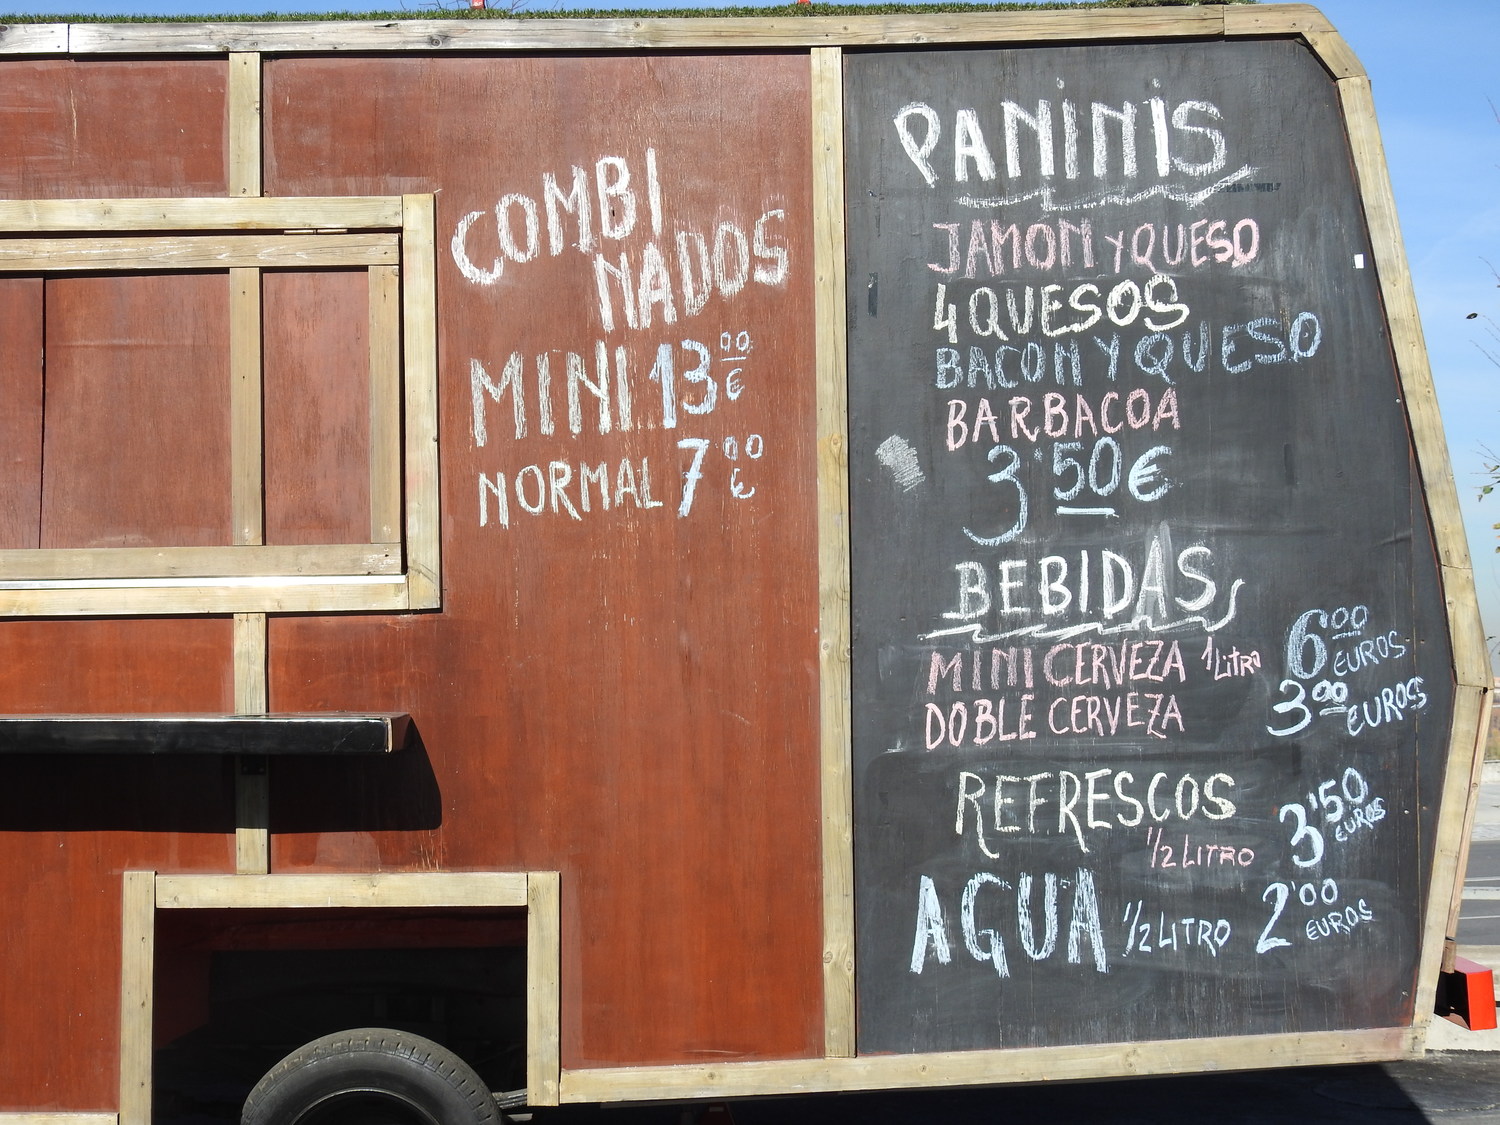 COMBI
NADOS
MINI 13 00 €
NORMAL 7 00 €
PANINIS
JAMON Y QUESO
4 QUESOS
BACON Y QUESO
BARBACOA
3'50 €
BEBIDAS
MINI CERVEZA 1 LITRO 6 00 EUROS
DOBLE CERVEZA 3 00 EUROS
REFRESCOS 3'50 EUROS
1/2 LITRO
AGUA 1/2 LITRO 2'00 EUROS